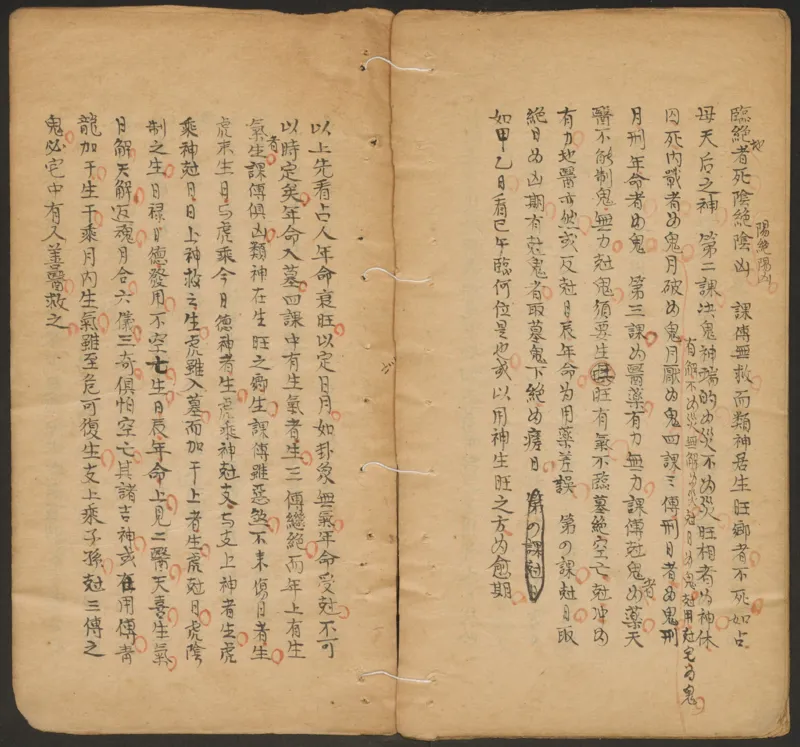 臨絕者死陰絕陰凶　課傳無救而類神居生旺鄉者不死如占
地
陽絕陽凶
母天后之神　第二課決鬼神端的为災不为災旺相者为神休
有解不为災無解为災尅日为鬼尅用尅宅为鬼
囚死內戰者为鬼月破为鬼月厭为鬼四課三傳刑日者为鬼刑
月刑年命者为鬼　第三課为醫藥有力無力課傳尅鬼者为藥天
醫不能制鬼無力尅鬼須要生旺有氣不臨墓絕空亡尅冲为
有力地醫亦然或反尅日辰年命为用藥差誤　第四課尅日取
絕日为凶期有尅鬼者取墓鬼下絕为瘥日　第四課尅日
如甲乙日看巳午臨何位是也或以用神生旺之方为愈期
以上先看占人年命衰旺以定日月如卦象無氣年命受尅不可
以時定矣年命入墓四課中有生氣者生三傳繼絕而年上有生
氣者生課傳俱凶類神在生旺之鄉生課傳雖惡煞不來傷日者生
虎來生日与虎乘今日德神者生虎乘神尅支与支上神者生虎
乘神尅日日上神救之生虎雖入墓而加干上者生虎尅月虎陰
制之生日祿日德發用不空亡生日辰年命上見二醫天喜生氣
日解天解返魂月合六儀三奇俱怕空亡其諸吉神或在用傳青
龍加干生干乘月內生氣雖至危可復生支上乘子孫尅三傳之
鬼必宅中有人善醫救之